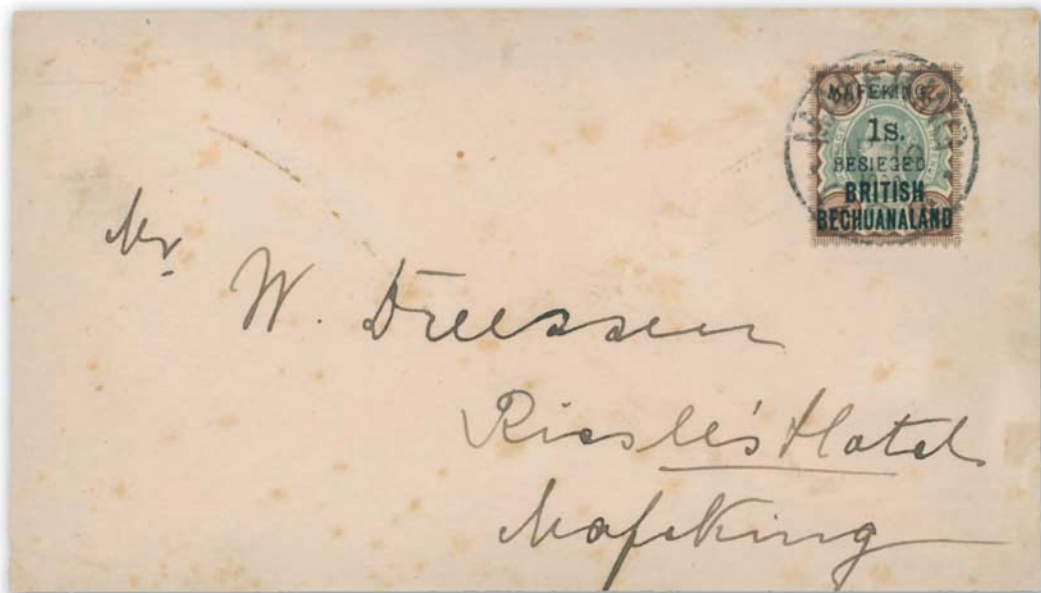 MAFEKING,
1s.
BESIEGED.
BRITISH
BECHUANALAND
Mr.
W. Dreessen
Riesle's Hotel
Mafeking